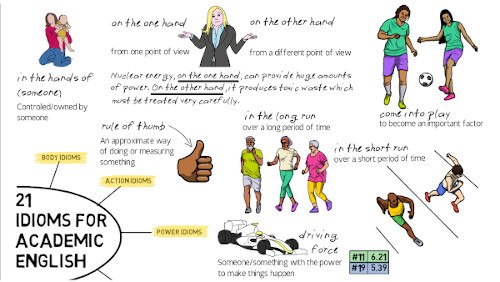 on the one hand
from one point of view
on the other hand
from a different point of view
in the hands of
(someone)
Controled/owned by
someone
Nuclear energy, on the one hand, can provide huge amounts
of power. On the other hand, it produces toxic waste which
must be treated very carefully.
come into play
to become an important factor
rule of thumb
An approximate way
of doing or measuring
something
in the long run
over a long period of time
in the short run
over a short period of time
BODY IDIOMS
ACTION IDIOMS
POWER IDIOMS
21
IDIOMS FOR
ACADEMIC
ENGLISH
driving
force
Someone/something with the power
to make things happen
#11 6.21
#19 5.39